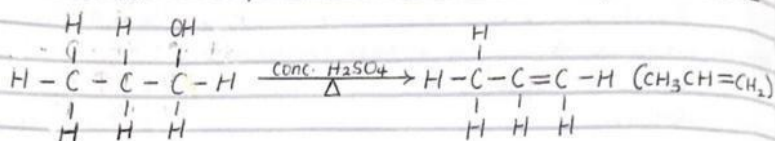 H H OH H
H - C - C - C - H conc. H2SO4 Δ → H - C - C = C - H (CH3CH=CH2)
H H H H H H